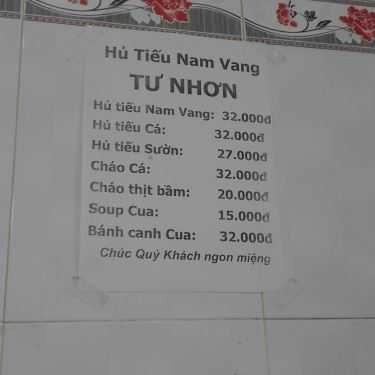 Hủ Tiếu Nam Vang
TƯ NHƠN
Hủ tiếu Nam Vang: 32.000đ
Hủ tiếu Cá: 32.000đ
Hủ tiếu Sườn: 27.000đ
Cháo Cá: 32.000đ
Cháo thịt bầm: 20.000đ
Soup Cua: 15.000đ
Bánh canh Cua: 32.000đ
Chúc Quý Khách ngon miệng